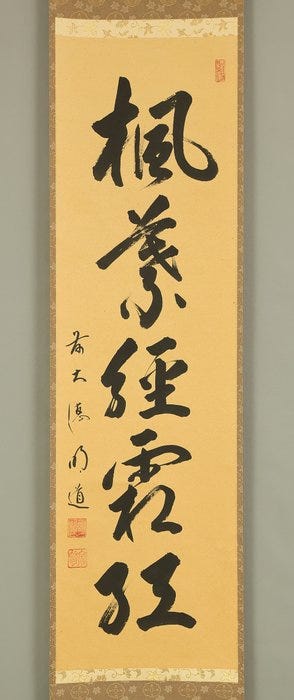 楓葉經霜紅
前大徳明道